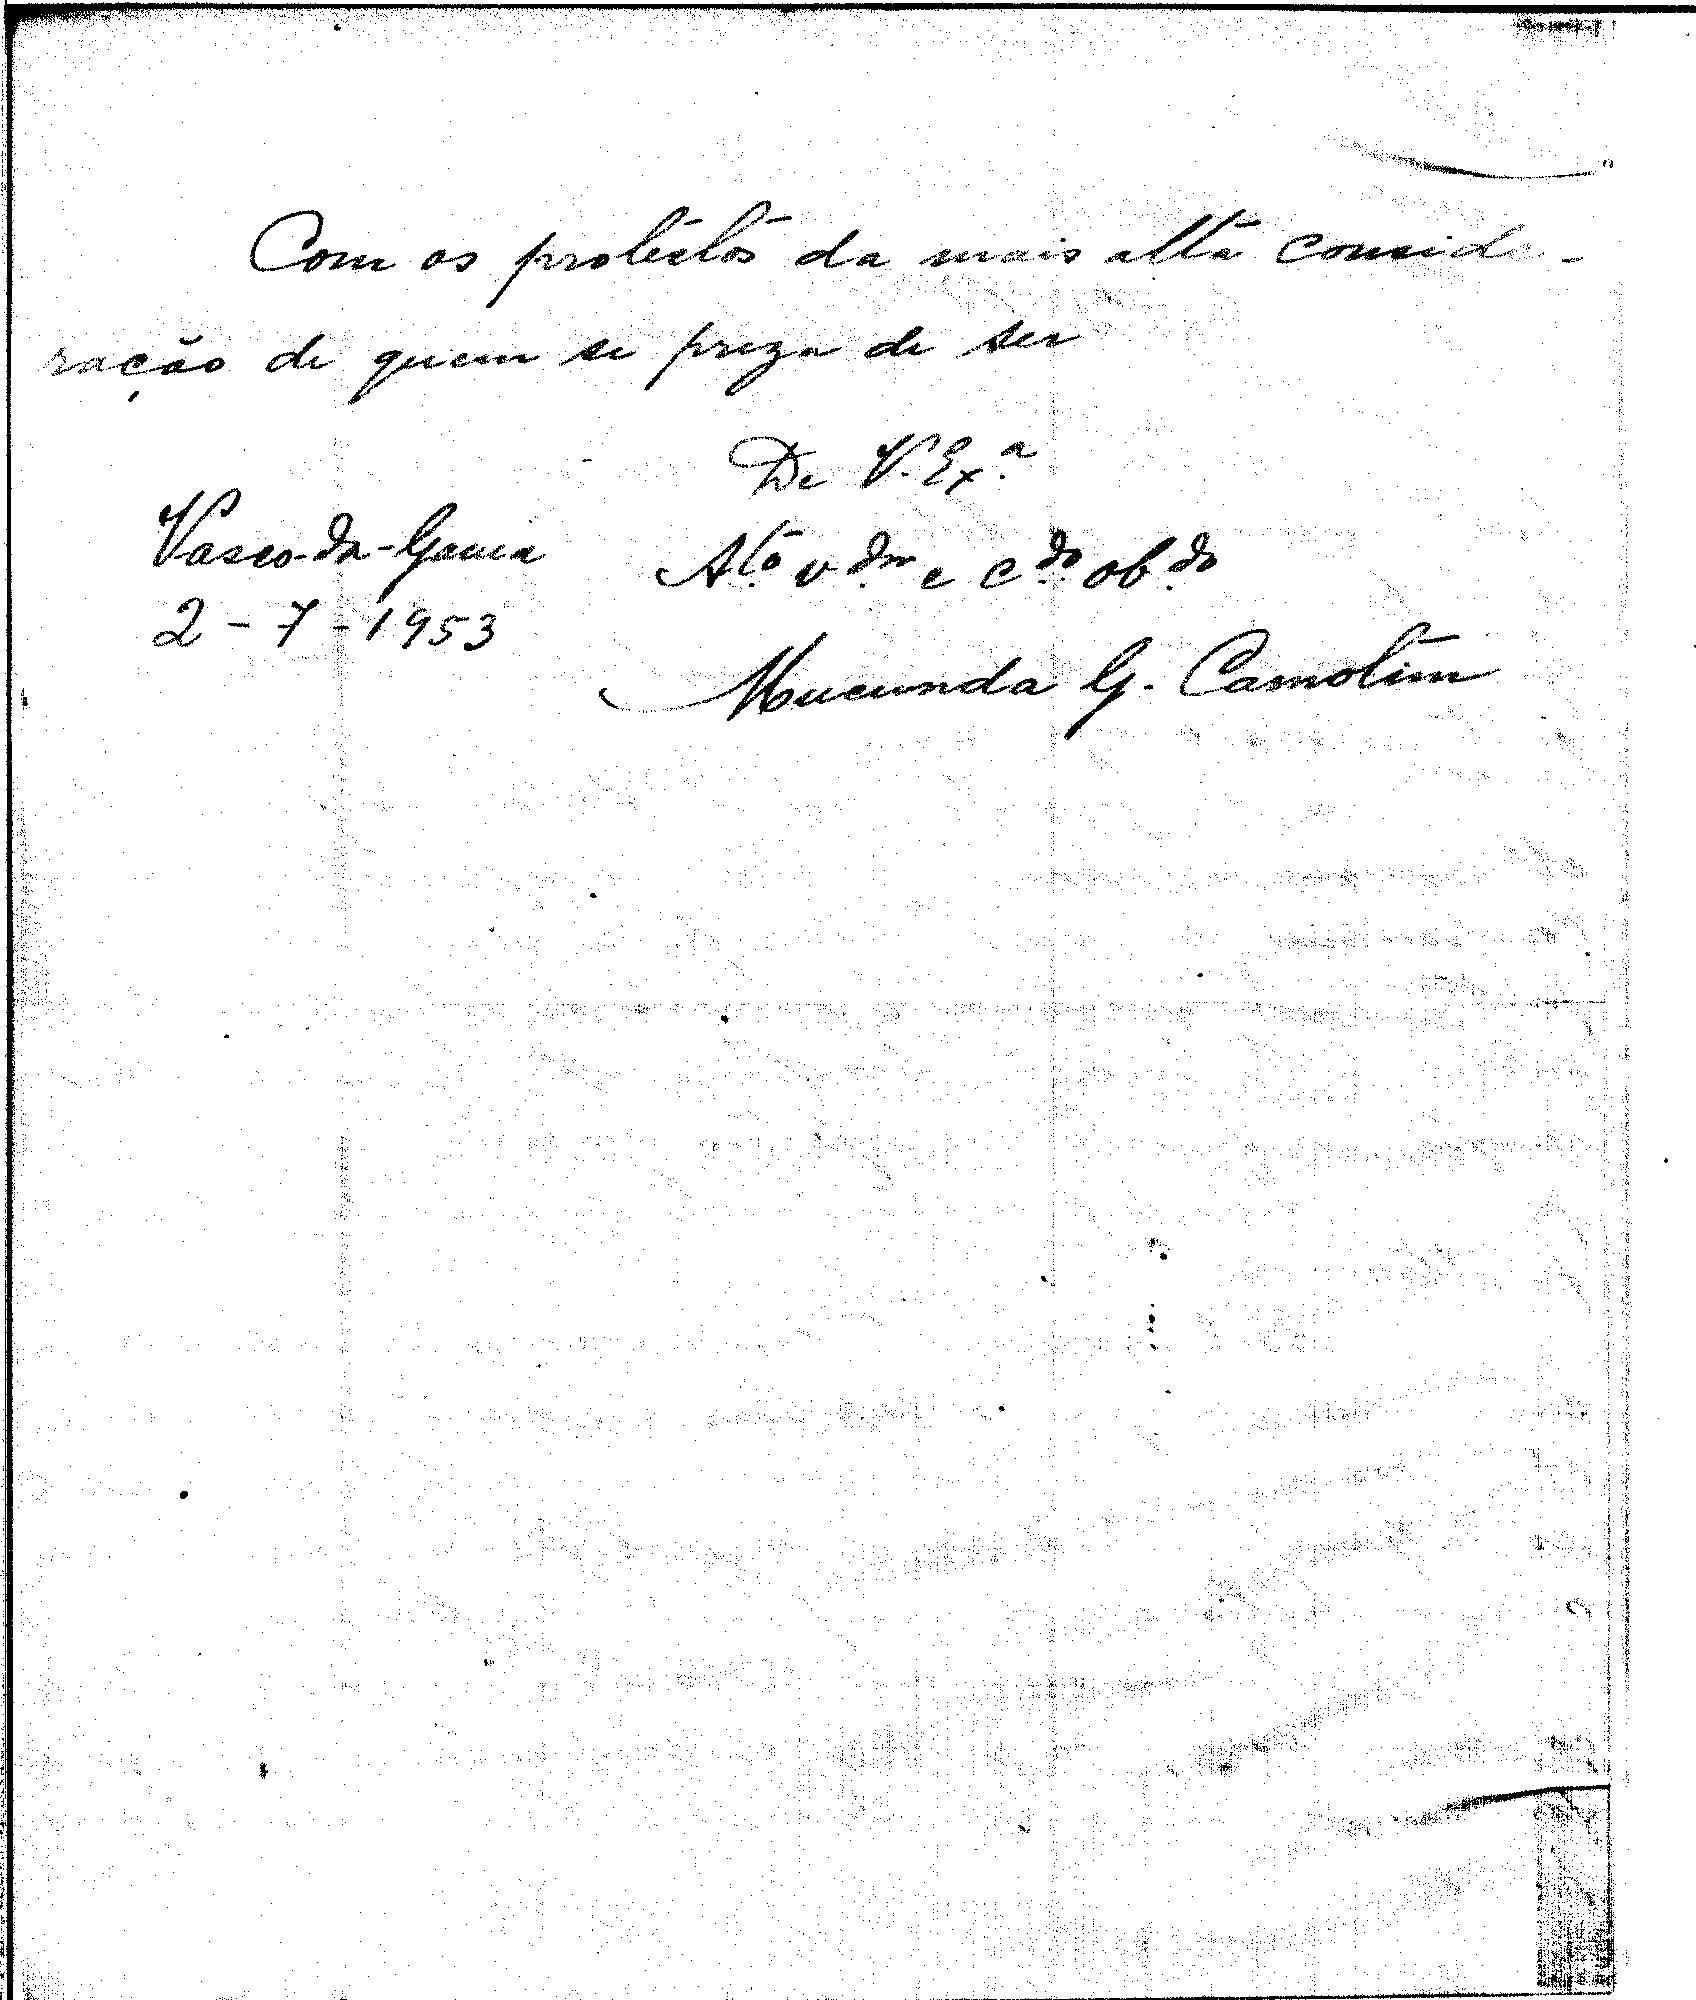 Com os protestos da mais alta conside-
ração de quem se preza de ser
De V. Ex.ª
Vasco-da-Gama
At.º v.dor e c.do ob.do
2-7-1953
Mucunda G. Camotim